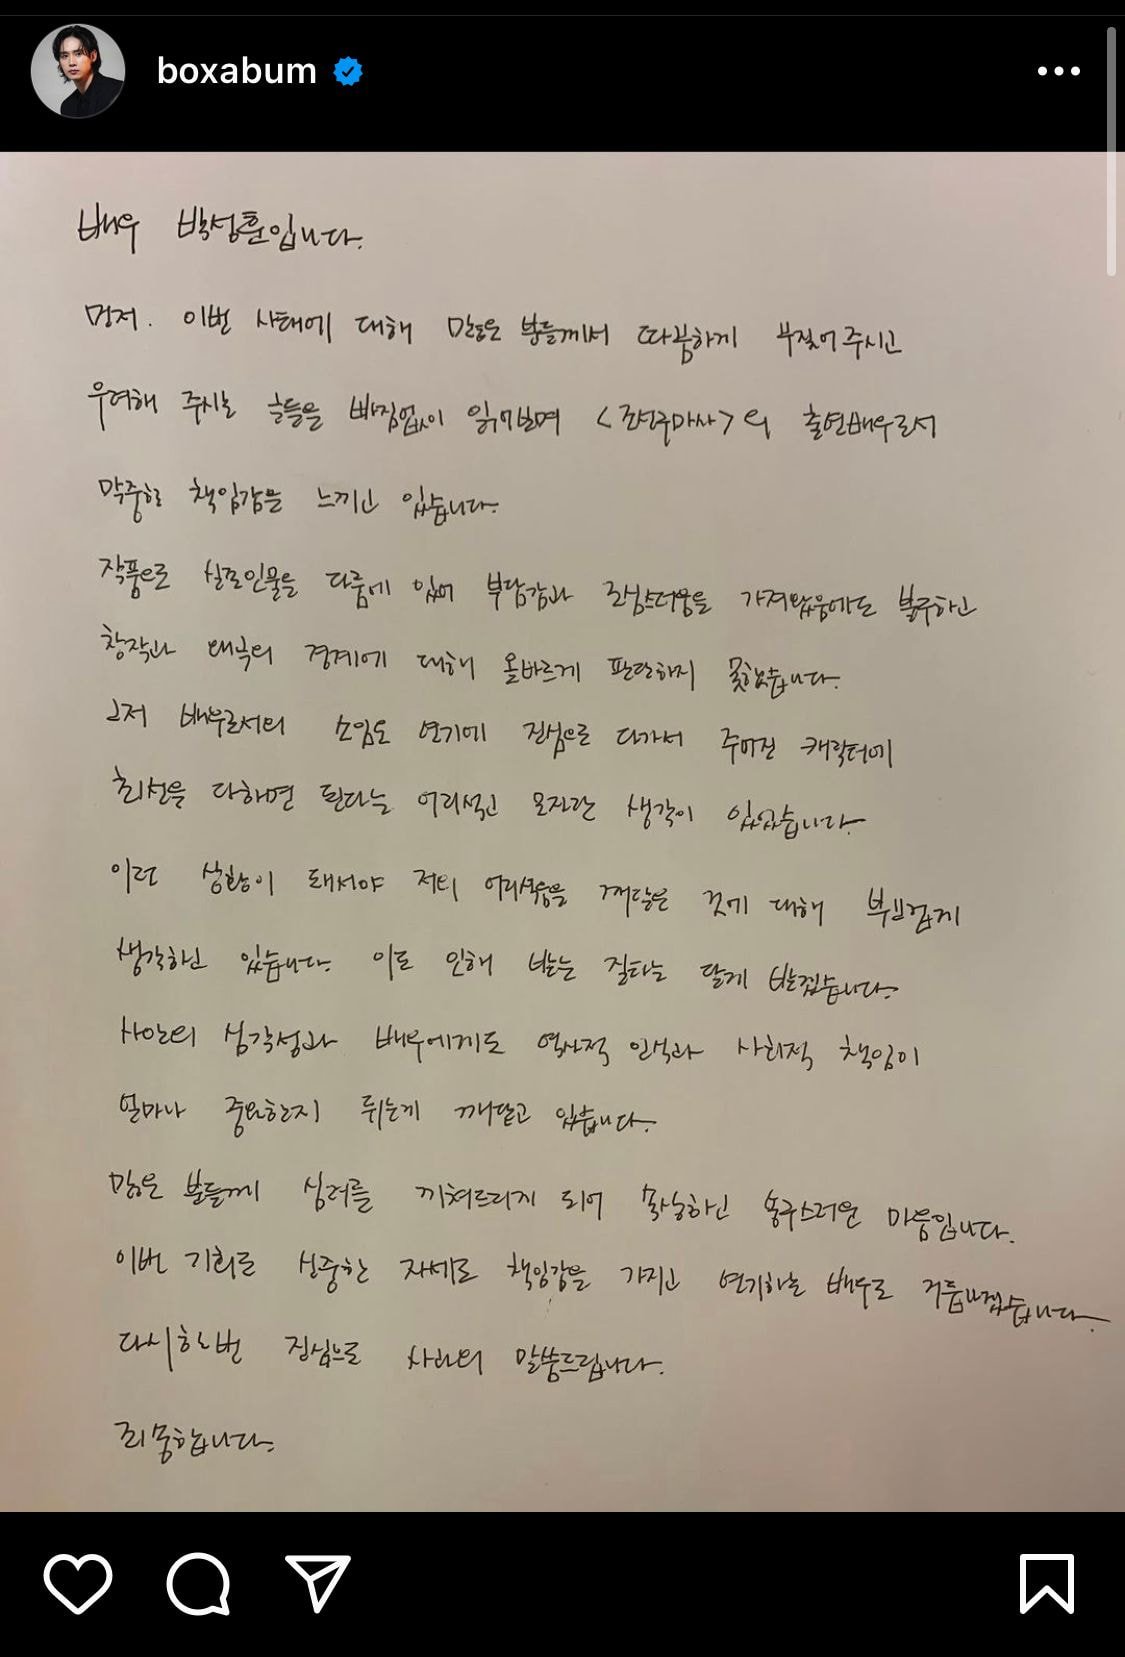 boxabum
배우 박성훈입니다.
먼저. 이번 사태에 대해 많은 분들께서 따끔하게 꾸짖어 주시고
우려해 주시는 글들을 빠짐없이 읽어보며 <조선구마사>의 출연배우로서
막중한 책임감을 느끼고 있습니다.
작품으로 실존인물을 다룸에 있어 부담감과 조심스러움을 가져왔음에도 불구하고
창작과 왜곡의 경계에 대해 올바르게 판단하지 못했습니다.
그저 배우로서의 소임도 연기에 진심으로 다가서 주어진 캐릭터에
최선을 다하면 된다는 어리석고 모자란 생각이 있었습니다.
이런 상황이 돼서야 저의 어리석음을 깨달은 것에 대해 부끄럽게
생각하고 있습니다. 이로 인해 받는 질타는 달게 받겠습니다.
사안의 심각성과 배우에게도 역사적 인식과 사회적 책임이
얼마나 중요한지 뒤늦게 깨닫고 있습니다.
많은 분들께 심려를 끼쳐드리게 되어 속상하고 송구스러운 마음입니다.
이번 기회로 신중한 자세로 책임감을 가지고 연기하는 배우로 거듭나겠습니다.
다시한번 진심으로 사과의 말씀드립니다.
죄송합니다.